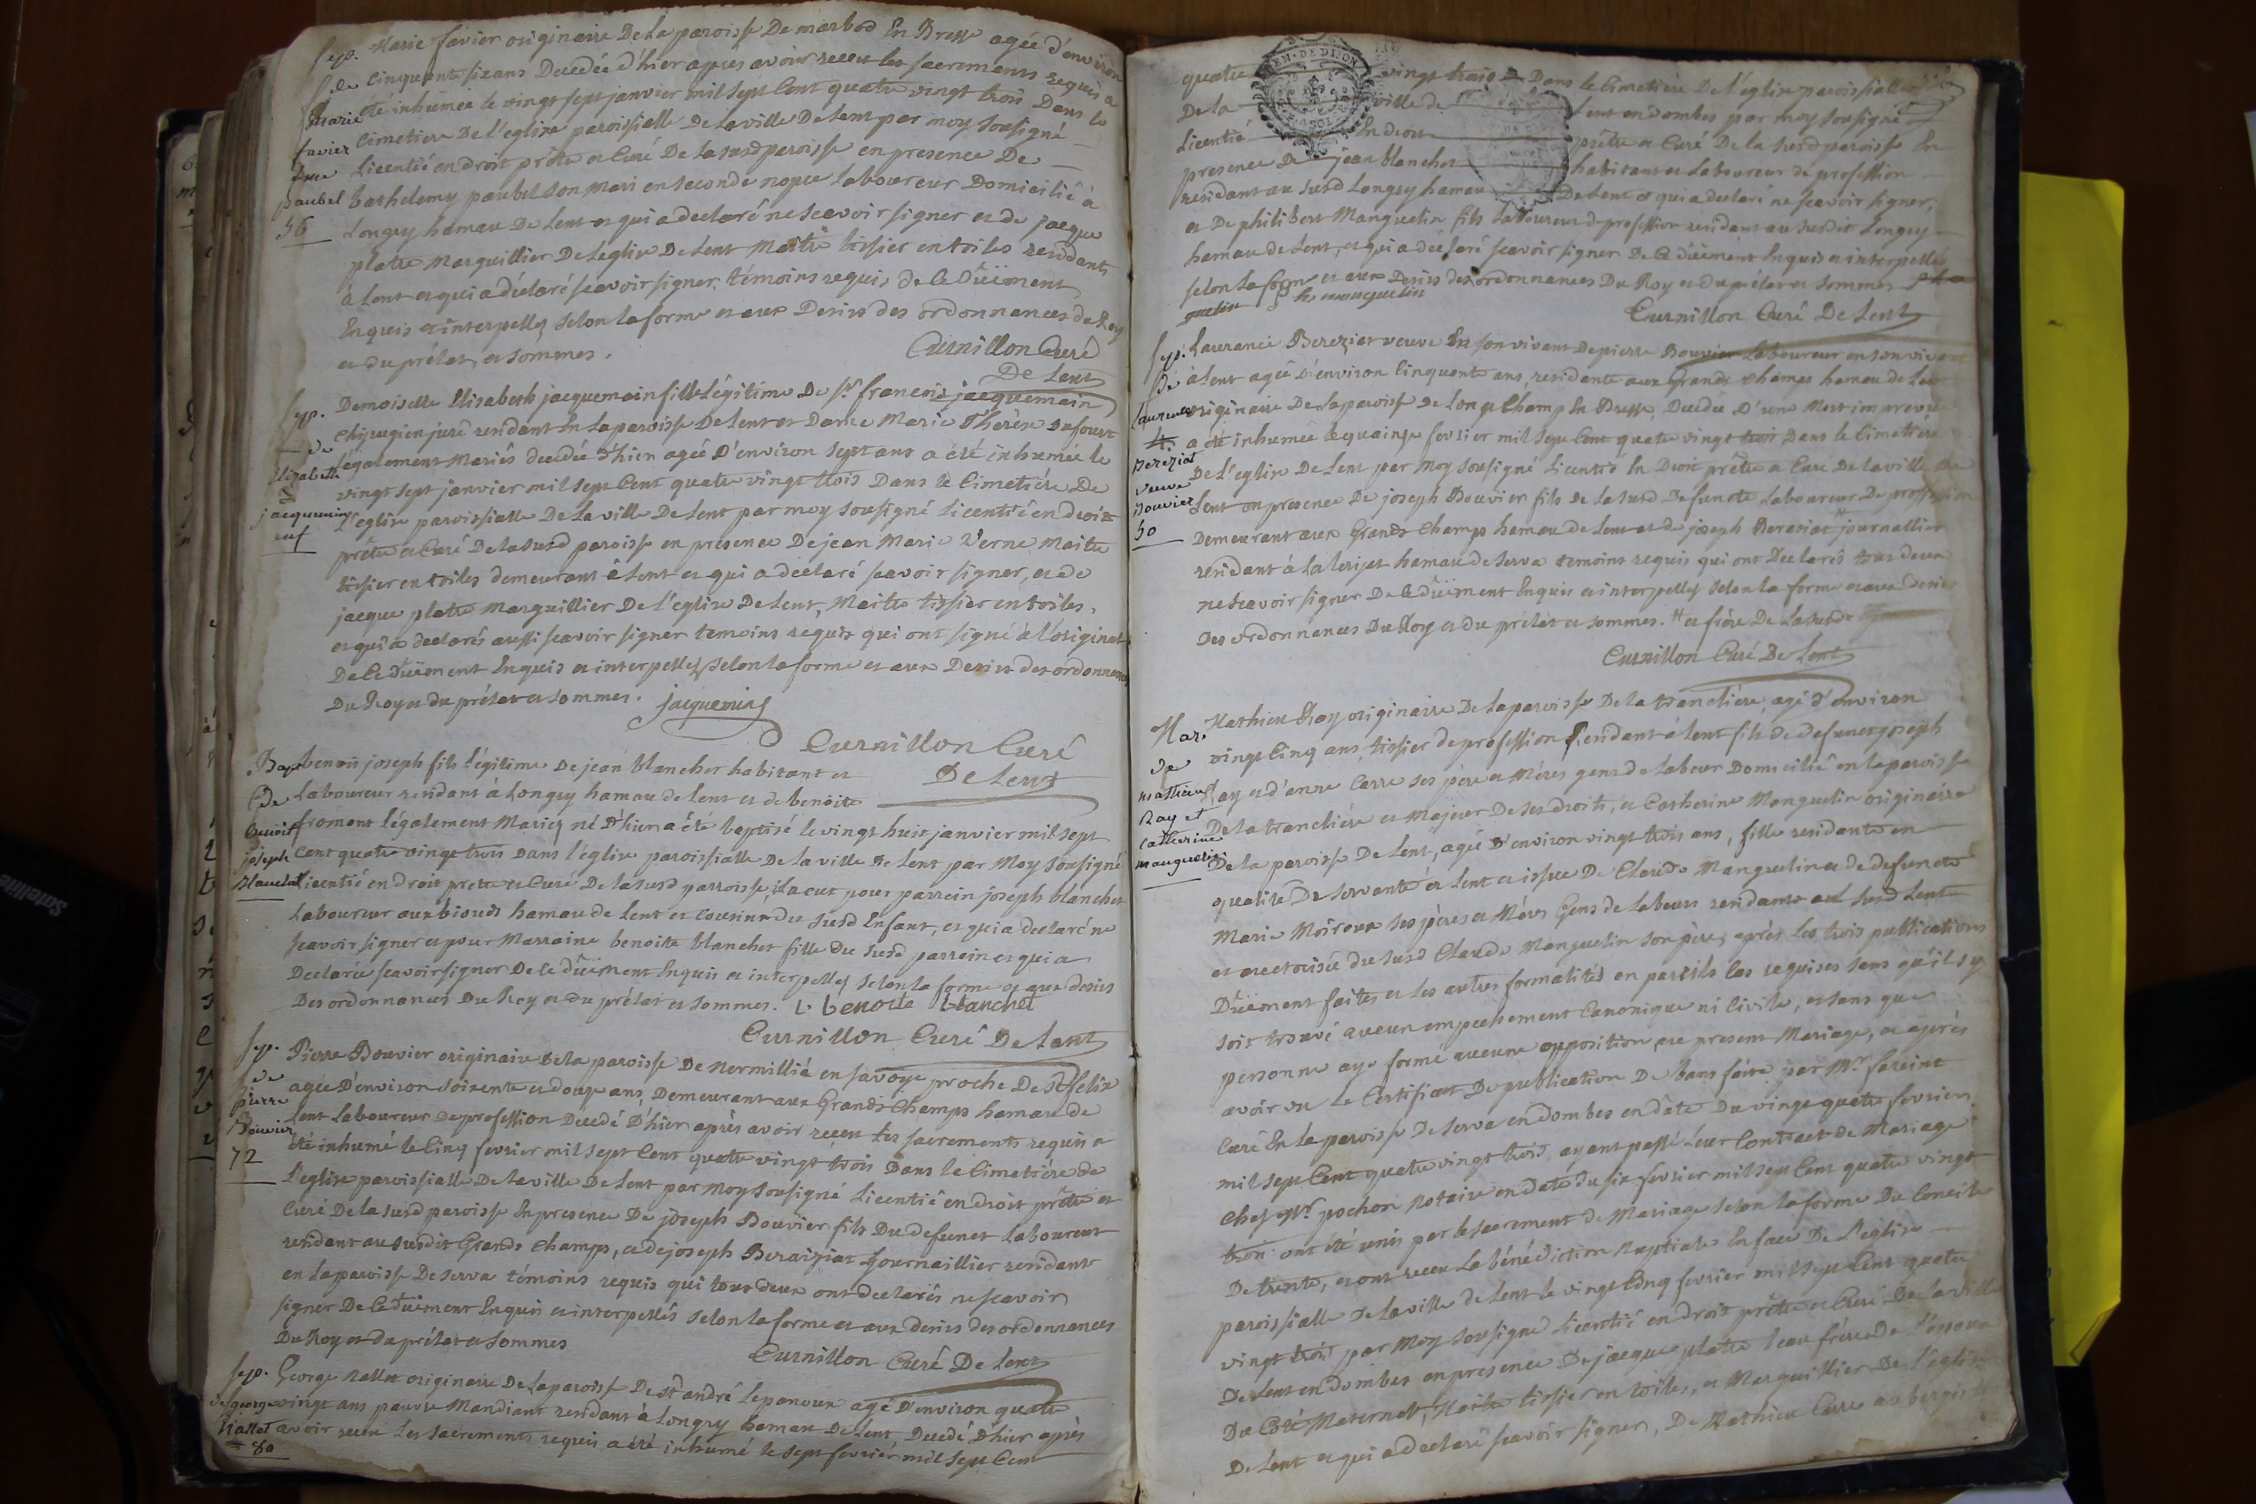 Sep.
de
Marie
favier
fme
paubel
56
Marie favier originaire De la paroisse De marbod En Bresse agée d'environ
Cinquante six ans Decedée d'hier apprès avoir receu les sacrements requis a
été inhumée le vingt sept janvier mil sept Cent quatre vingt trois Dans le
Cimetiere De l'eglise paroissialle De la ville De Lent par moy sousigné
Licentié en droit prêtre et Curé De la susd paroisse en presence De
barthelemy paubel son Mari en seconde nopce laboureur Domicilié à
Longry hamau De Lent et qui a declaré ne scavoir signer et de jacque
platre Marguillier De L'eglise De Lent Maitre tissier en toiles residant
à Lent et qui a déclaré scavoir signer, témoins requis de Ce Duëment
Enquis et interpellez selon la forme et aux Desirs des ordonnances du Roy
et du prélat, et sommes.
Curnillon Curé
De Lent
Sep.
de
Elizabeth
jacquemin
7
Demoiselle Elisabeth jacquemain fille Légitime De Sr. francois jacquemain
Chirurgien juré residant En La paroisse De Lent et Dame Marie Thérèse
légalement Mariés decedée d'hier agée D'environ sept ans a été inhumée le
vingt sept janvier mil sept Cent quatre vingt trois Dans le Cimetiére De
L'eglise paroissialle De la ville De Lent par moy sousigné Licentié en droit
prêtre et Curé De la susd paroisse en presence De jean Marie Verne Maitre
tissier en toiles demeurant à Lent et qui a declaré scavoir signer, et de
jacque platre Marguillier De l'eglise De Lent, Maitre tissier en toiles,
et qui a declaré aussi scavoir signer temoins requis qui ont signé à l'original
De Ce Duëment Enquis et interpellez selon la forme et aux Desirs des ordonnances
Du Roy et du prélat et sommes. jacquemin
Curnillon Curé
De Lent
Bap
de
benoit
joseph
Blanchet
benoit joseph fils légitime De jean blanchet habitant et
Laboureur residant à Longry hamau de Lent et de benoite
froment légalement Mariez né d'hier a été baptisé le vingt huit janvier mil sept
Cent quatre vingt trois Dans l'église paroissialle De la ville De Lent par Moy sousigné
Licentié en droit pretre et Curé De la susd parroisse, il a eut pour parrein joseph blanchet
Laboureur aux bioudes hamau de Lent et Cousin du susd Enfant, et qui a declaré ne
scavoir signer et pour Marraine benoite blanchet fille du susd parrein et qui a
Declarée scavoir signer De Ce duëment Enquis et interpellez selon la forme et aux desirs
Des ordonnances Du Roy et du prélat et sommes. benoite blanchet
Curnillon Curé De Lent
Sep.
de
Pierre
Bouvier
72
Pierre Bouvier originaire De la paroisse De Mermillié en savoye proche De St felix
agée D'environ soixente et douze ans, Demeurant aux Grands Champs hamau de
Lent Laboureur De profession Decedé D'hier après avoir receu les sacrements requis a
été inhumé le Cinq fevrier mil sept Cent quatre vingt trois Dans le Cimetiére de
L'eglise paroissialle De la ville De Lent par Moy sousigné Licentié en droit prêtre et
Curé De la susd paroisse En presence De joseph Bouvier fils Du defunct Laboureur
residant au susdit Grands Champs, et de joseph Beraiziat journaillier residant
en La paroisse De serva témoins requis qui tous deux ont declarés ne scavoir
signer De Ce Duëment Enquis et interpellés selon la forme et aux desirs des ordonnances
Du Roy et du prélat et sommes
Curnillon Curé De Lent
Sep.
de george
Nallet
80
George Nallet originaire De La paroisse De st andré le panoux agé D'environ quatre
vingt ans pauvre Mandiant residant à Longry hamau De Lent, Decedé D'hier après
avoir receu Les sacrements requis a été inhumé le sept fevrier mil sept Cent
GEN. DE DIJON
quatre vingt trois Dans le Cimetiére De l'église paroissialle
De la ville de Lent en dombes par moy sousigné
Licentié En droit prêtre et Curé De la susd paroisse En
presence De jean blanchet habitant et Laboureur de profession
residant au susd Longry hamau De Lent et qui a declaré ne scavoir signer,
et De philibert Manguelin fils Laboureur de profession residant au susdit Longry
hamau de Lent, et qui a déclaré scavoir signer De Ce duëment Enquis et interpellez
selon la forme et aux Desirs des ordonnances Du Roy et du prélat et sommes
Curnillon Curé De Lent
Sep.
De
Laurence
Bereziat
veuve
Bouvier
50
Laurance Bereziat veuve En son vivant De pierre Bouvier Laboureur en son vivant
à Lent agée D'environ Cinquante ans, residente aux Grands Champs hamau de Lent
originaire De la paroisse de Long Champ En Bresse, Decedée D'une Mort imprevue
a été inhumée le quainze fevrier mil sept Cent quatre vingt trois Dans le Cimetiere
De L'eglise De Lent par Moy sousigné Licentié En Droit prêtre et Curé De la ville De
Lent en presence De joseph Bouvier fils de la susd Defuncte Laboureur De profession
Demeurant aux Grands Champs hamau de Lent et de joseph Bereziat journallier
residant à la hamau de Serva temoins requis qui ont Declarés tous deux
ne scavoir signer De Ce duëment Enquis et interpellez selon la forme et aux Desirs
Des ordonnances Du Roy et du prélat et sommes. # et frére De la susd
Curnillon Curé De Lent
Mar.
De
Mathieu
Ray et
Catherine
Manguelin
Mathieu Ray originaire De la paroisse De la tranclière, agé d'environ
vingt Cinq ans, tissier de profession residant à Lent fils de defunct joseph
Ray et d'anne Carre ses père et Méres gens de Labeur Domicilié en la paroisse
De la tranclière et Majeur De ses droits, et Catherine Manguelin originaire
De la paroisse De Lent, agée D'environ vingt trois ans, fille residante en
qualité De servante à Lent et issue De Claude Manguelin et de defuncte
Marie Moiroux ses péres et Méres Gens de Labeurs residants au susd Lent
et auctorisée du susd Claude Manguelin son père, après Les trois publications
Duëment faites et les autres formalités en pareils Cas requises sans qu'il s'y
soit trouvé aucun empechement Canonique ni Civile, et sans que
personne aye formé aucune opposition au present Mariage, et après
avoir vu le Certificat De publication De bans faite par Mr fareint
Curé En la paroisse De Serva en dombes en date Du vingt quatre fevrier
mil sept Cent quatre vingt trois, ayant passé leur Contract de Mariage
Chez Mr. pochon Notaire en date du six fevrier mil sept Cent quatre vingt
trois ont été unis par le sacrement de Mariage selon la forme Du Concile
De trente, et ont receu La bénédiction Nuptiale En face De L'eglise
paroissialle De la ville de Lent le vingt Cinq fevrier mil sept Cent quatre
vingt trois par Moy sousigné Licentié en droit prêtre et Curé De la ville
De Lent en dombes en presence De jacque platre beau frére de l'epoux
Du Coté Maternel, Maitre tissier en toiles, et Marguillier De L'eglise
De Lent et qui a declaré scavoir signer, De Mathieu Carre aubergiste